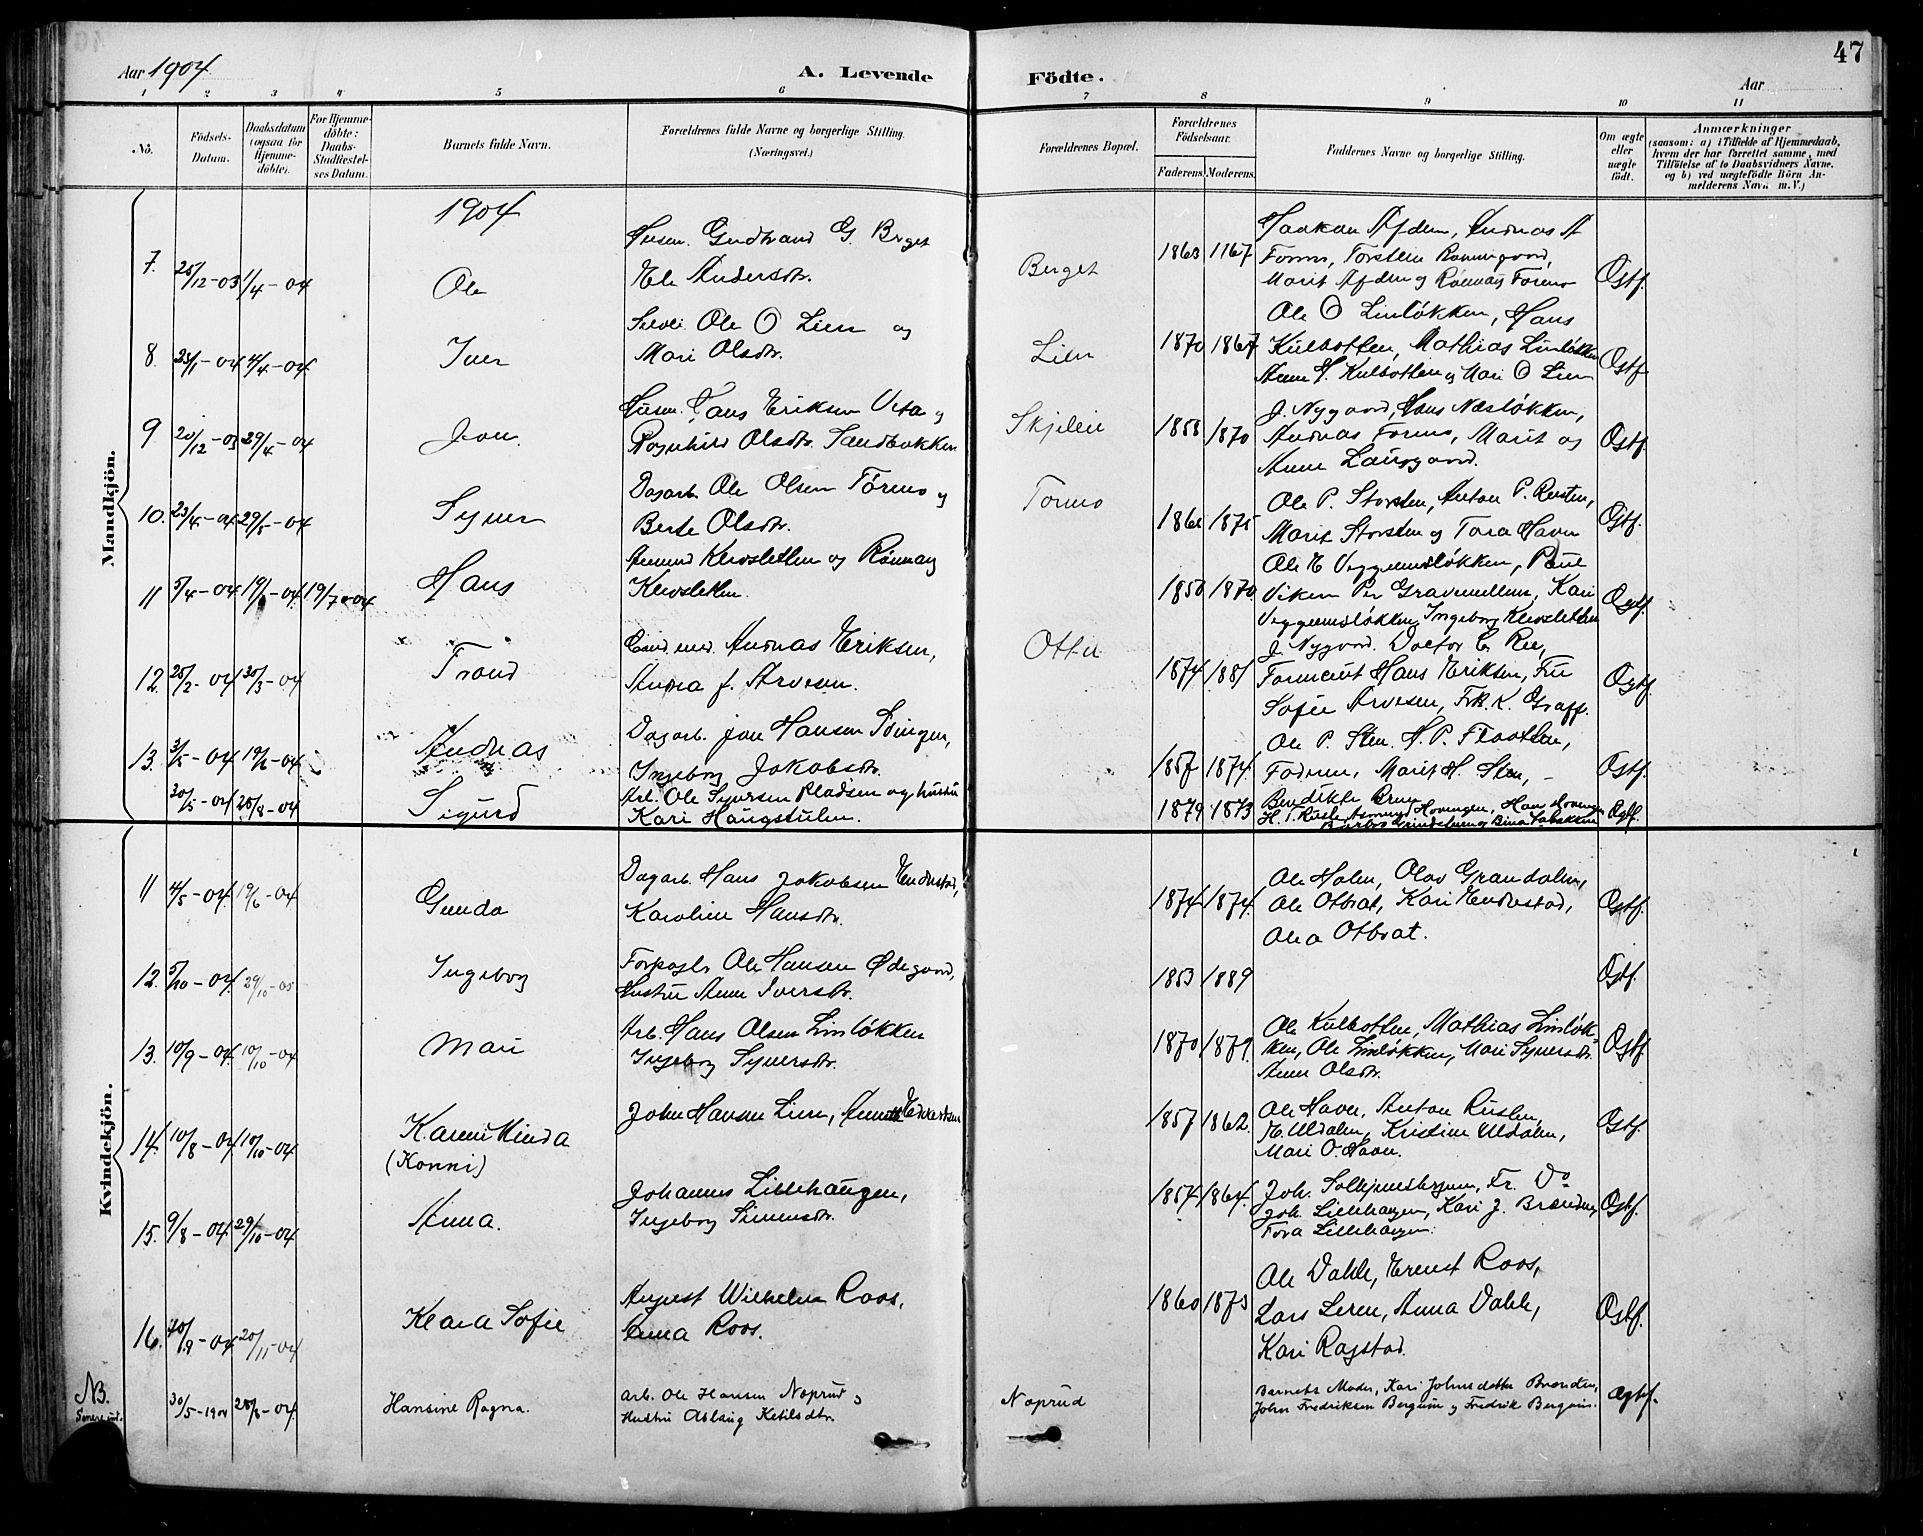 Aar 1904.
A. Levende
Födte.
47
Aar
1 2 3 4 5 6 7 8 9 10 11
Nô.
Födsels-
Datum.
Daabsdatum
(ogsaa for
Hjemme-
döbte).
For Hjemme-
döbte:
Daabs-
Stadfæstel-
ses Datum.
Barnets fulde Navn.
Forældrenes fulde Navne og borgerlige Stilling.
(Næringsvei.)
Forældrenes Bopæl.
Forældrenes
Födselsaar.
Faderens. Moderens.
Faddernes Navne og borgerlige Stilling.
Om ægte
eller
uægte
födt.
Anmærkninger
(saasom: a) i Tilfælde af Hjemmedaab,
hvem der har forrettet samme, med
Tilföielse af to Daabsvidners Navne.
og b) ved uægtefödte Börn An-
melderens Navn m.V.)
Mandkjön.
1904
7. 28/12-03 1/4-04
Ole
Gudbrand G. Berget
Andersdtr.
Berget
1863 1167
Haakon Formo, Torstein
Marit og Rønnaug Formo
Ægtf.
8. 23/1-04 4/4-04
Iver
Selvei. Ole O Lien og
Mari Olsdtr.
Lien
1870 1867
Ole O Linløkken, Hans
Kulbotten, Mathias Linløkken
Anne H. Kulbotten og Mari O Lien
Ægtf
9 20/12-03 29/4-04
Jon.
Hans Eriksen og
Ragnhild Olsdtr. Sandbakken
Skjelei
1858 1870
J. Nygaard, Hans Næsløkken,
Andreas Formo, Marit og
Anne Laurgaard.
Ægtf.
10. 23/4-04 29/5-04
Syver
Dagarb. Ole Olsen Formo og
Berte Olsdtr.
Formo
1875
Ole P. Storsten, Anton P. Rusten,
Marit Storsten og Tora Haven
Ægtf.
11 5/4-04 19/6-04. 19/7-04
Hans
Amund Klevsletten og Rønnaug
Klevsletten
1850 1870
Ole E Veggumsløkken, Paul
Viken Per Gravemellem, Kari
Veggumsløkken, Ingeborg Klevsletten
Ægtf.
12. 28/2-04 30/3-04
Trond
Andreas Eriksen,
Anna f. Arvesen.
Otta
1874 1881
J. Nygaard. Doctor C. Ree,
Hans Eriksen, Fru
Sofie Arvesen, Frk. K. Graff.
Ægtf.
13. 3/5-04 19/6-04
Andreas
Dagarb. Jon Hansen
Ingeborg Jakobsdtr.
1857 1874.
Ole P. Sten. H. P. Flaatten,
Faderen, Marit H. Sten, -
Benedikte Brun
Ægtf.
20/5-04 28/8-04
Sigurd
Arb. Ole Syversen Pladsen og hustru
Kari Haugstulen.
1879 1873
Amund Hovingen, Hans
Ægtf.
Kvindekjön.
11 4/5-04. 19/6-04
Gunda
Dagarb. Hans Jakobsen Endrestad,
Karoline Hansdtr.
1874 1874.
Ole Holen, Olav Grandalen,
Ole Otbrat, Kari Endrestad,
Otbrat.
Ægtf.
12. 5/10-04. 29/10-05
Ingeborg
Ole Hansen Ødegaard,
Hustru Anne Iversdtr.
1853 1889
Ægtf.
13. 10/9-04. 10/10-04
Mari
Arb. Hans Olsen Linløkken
Ingeborg Syversdtr.
1870 1879.
Ole Kulbotten, Mathias Linløk-
ken, Ole Linløkken, Mari Syversdtr.
Anne Olsdtr.
Ægtf.
14. 10/8-04 10/10-04
Karen Minda
(Konni)
John Hansen Lien,
1857 1862.
Ole Haven, Anton Rusten,
E. Uldalen, Kristine Uldalen,
Mari O. Haven.
Ægtf.
15. 9/8-04 29/10-04
Anna.
Johannes Lillehaugen,
Ingeborg Simensdtr.
1857 1864.
Joh. Solhjemshaugen, Fr. Do
Joh. Lillehaugen, Kari J. Brænden,
Tora Lillehaugen.
Ægtf.
16. 20/9-04 20/11-04
Klara Sofie
August Wilhelm Roos,
Anna Roos.
1860 1873
Ole Dahle, Ernst Roos,
Lars Leren, Anna Dahle,
Kari Ragstad.
Ægtf.
NB.
Senere indt.
30/5-1904 28/8-04.
Hansine Ragna.
Arb. Ole Hansen Noprud og
Hustru Aslaug Ketilsdtr.
Noprud
Barnets Moder, Kari Johnsdatter Brænden,
John Fredriksen Bergum og Fredrik Bergum.
Ægtf.